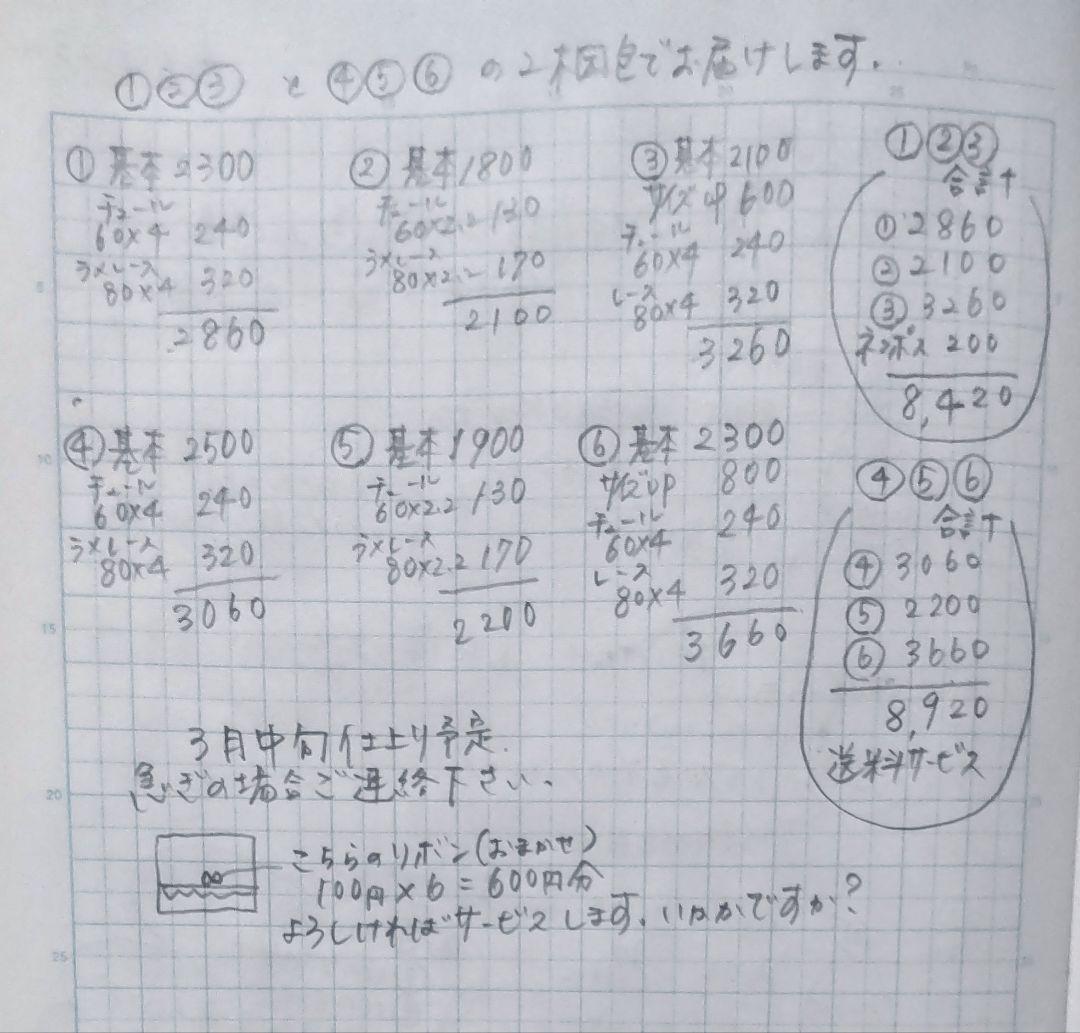 ①②③ と ④⑤⑥ の2梱包でお届けします.
① 基本 2300
チュール
60×4 240
ラメレース
80×4 320
2860
② 基本 1800
チュール
60×2.2 130
ラメレース
80×2.2 170
2100
③ 基本 2100
サイズup 600
チュール
60×4 240
レース
80×4 320
3260
①②③
合計
① 2860
② 2100
③ 3260
ネコポス 200
8,420
④ 基本 2500
チュール
60×4 240
ラメレース
80×4 320
3060
⑤ 基本 1900
チュール
60×2.2 130
ラメレース
80×2.2 170
2200
⑥ 基本 2300
サイズup 800
チュール
60×4 240
レース
80×4 320
3660
④⑤⑥
合計
④ 3060
⑤ 2200
⑥ 3660
8,920
送料サービス
3月中旬仕上り予定.
急ぎの場合ご連絡下さい.
こちらのリボン(おまかせ)
100円×6=600円分
よろしければサービスします. いかがですか?
5
10
15
20
25